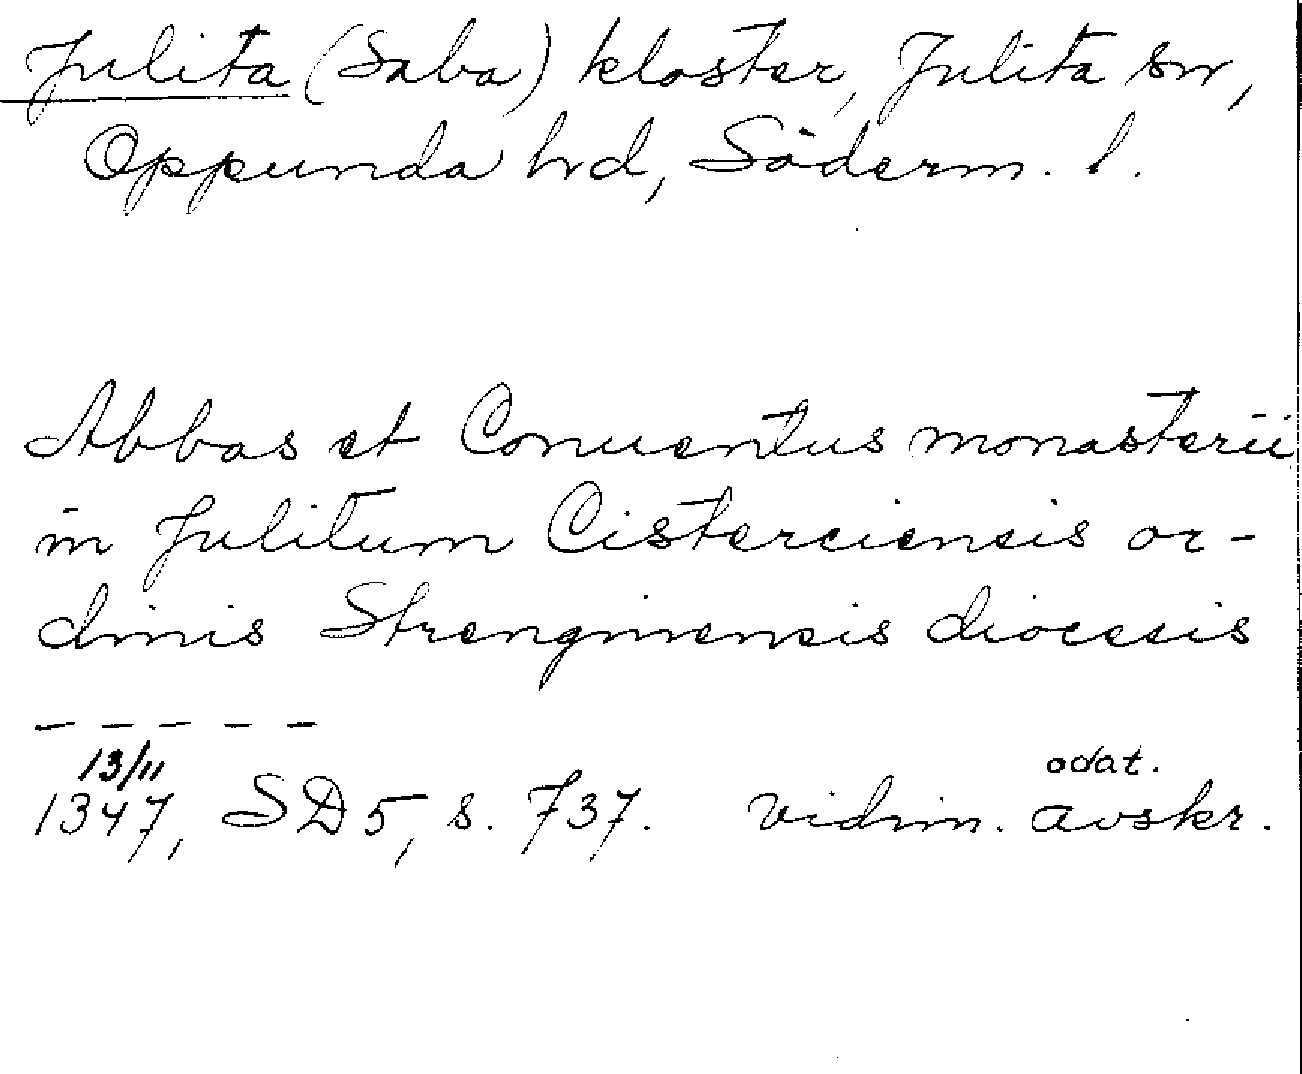 Julita (Saba) kloster, Julita sn,
Oppunda hd, Söderm. l.
Abbas et Conuentus monasterii
in Julitum Cisterciensis or-
dinis Strenginensis diocesis
- - - - -
13/11
1347, SD 5, s. 737. vidim. avskr.
odat.